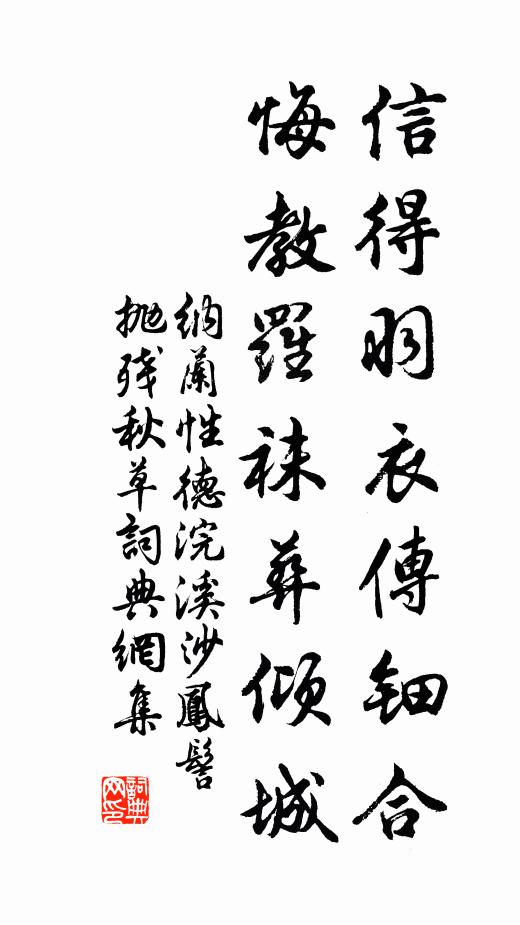 信得羽衣傳鈿合
悔教羅袜葬傾城
納蘭性德浣溪沙鳳髻
拋殘秋草詞典網集
詞典網印